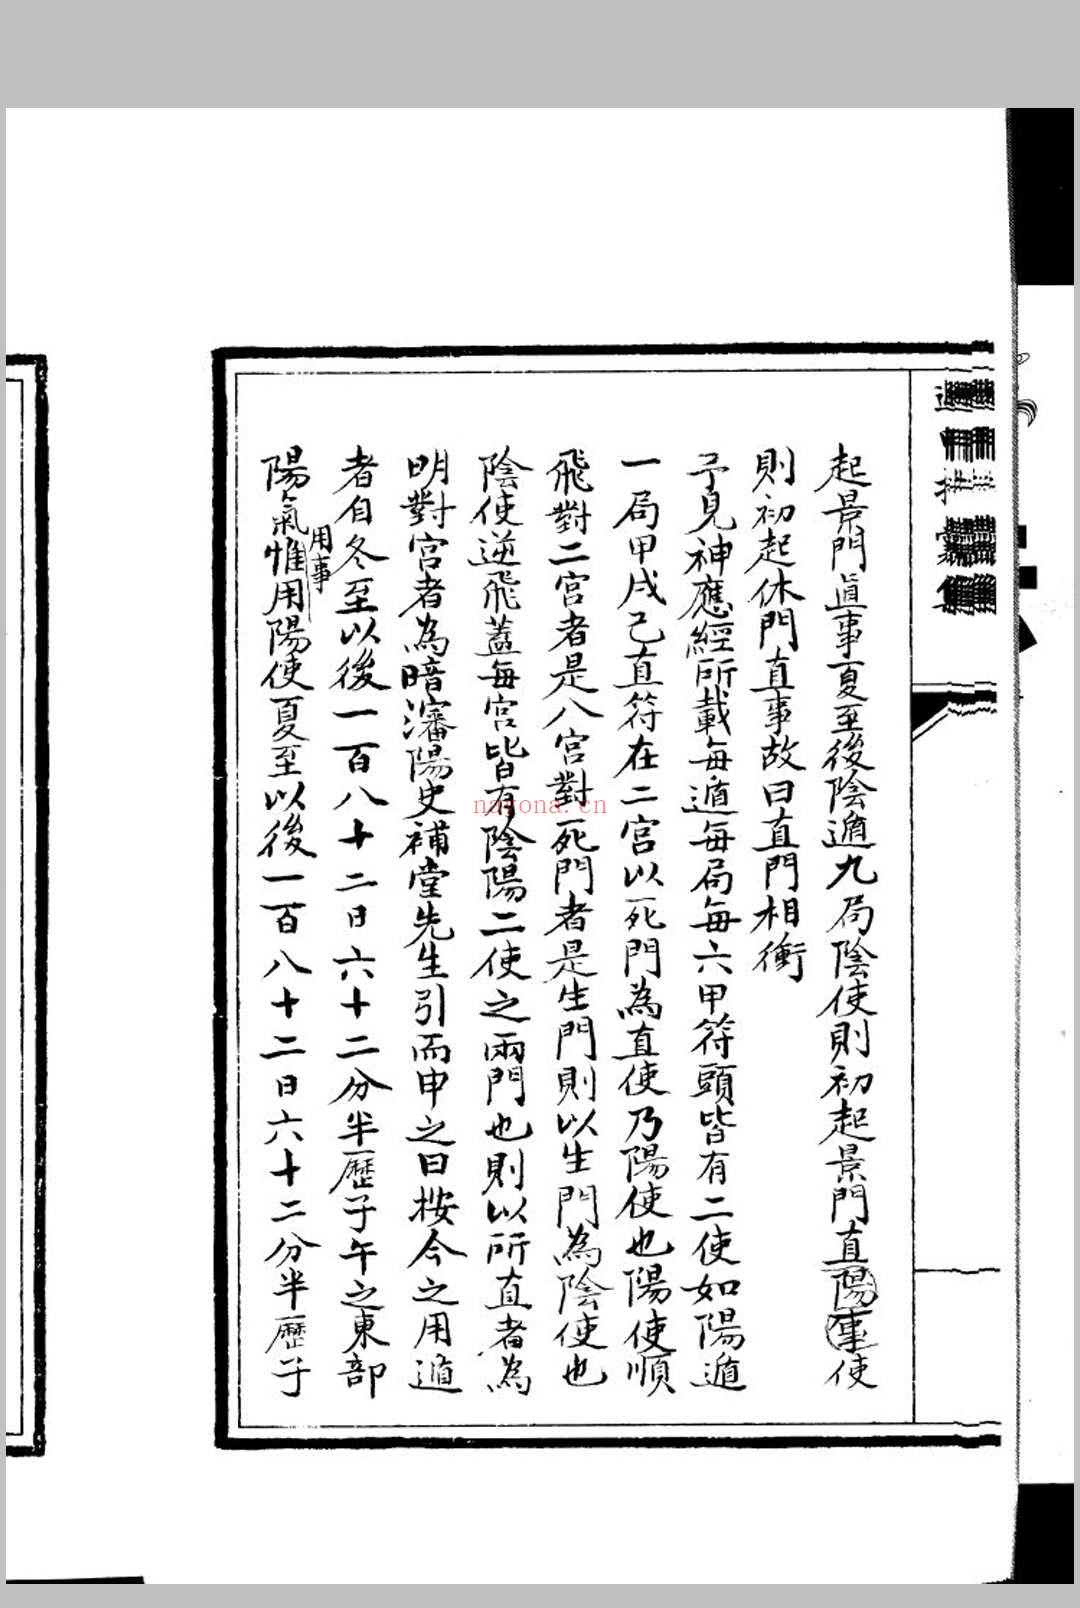 起景門直事夏至後陰遁九局陰使則初起景門直陽事使
則初起休門直事故曰直門相衝
予見神應經所載每遁每局每六甲符頭皆有二使如陽遁
一局甲戌己直符在二宮以死門為直使乃陽使也陽使順
飛對二宮者是八宮對死門者是生門則以生門為陰使也
陰使逆飛蓋每宮皆有陰陽二使之兩門也則以所直者為
明對宮者為暗瀋陽史補堂先生引而申之曰按今之用遁
者自冬至以後一百八十二日六十二分半歷子午之東部
陽氣用事惟用陽使夏至以後一百八十二日六十二分半歷子
nayona.cn